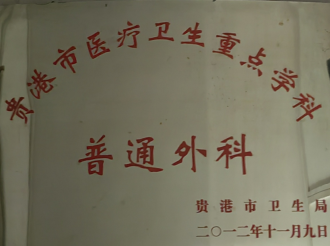 贵港市医疗卫生重点学科
普通外科
贵港市卫生局
二〇一二年十一月九日